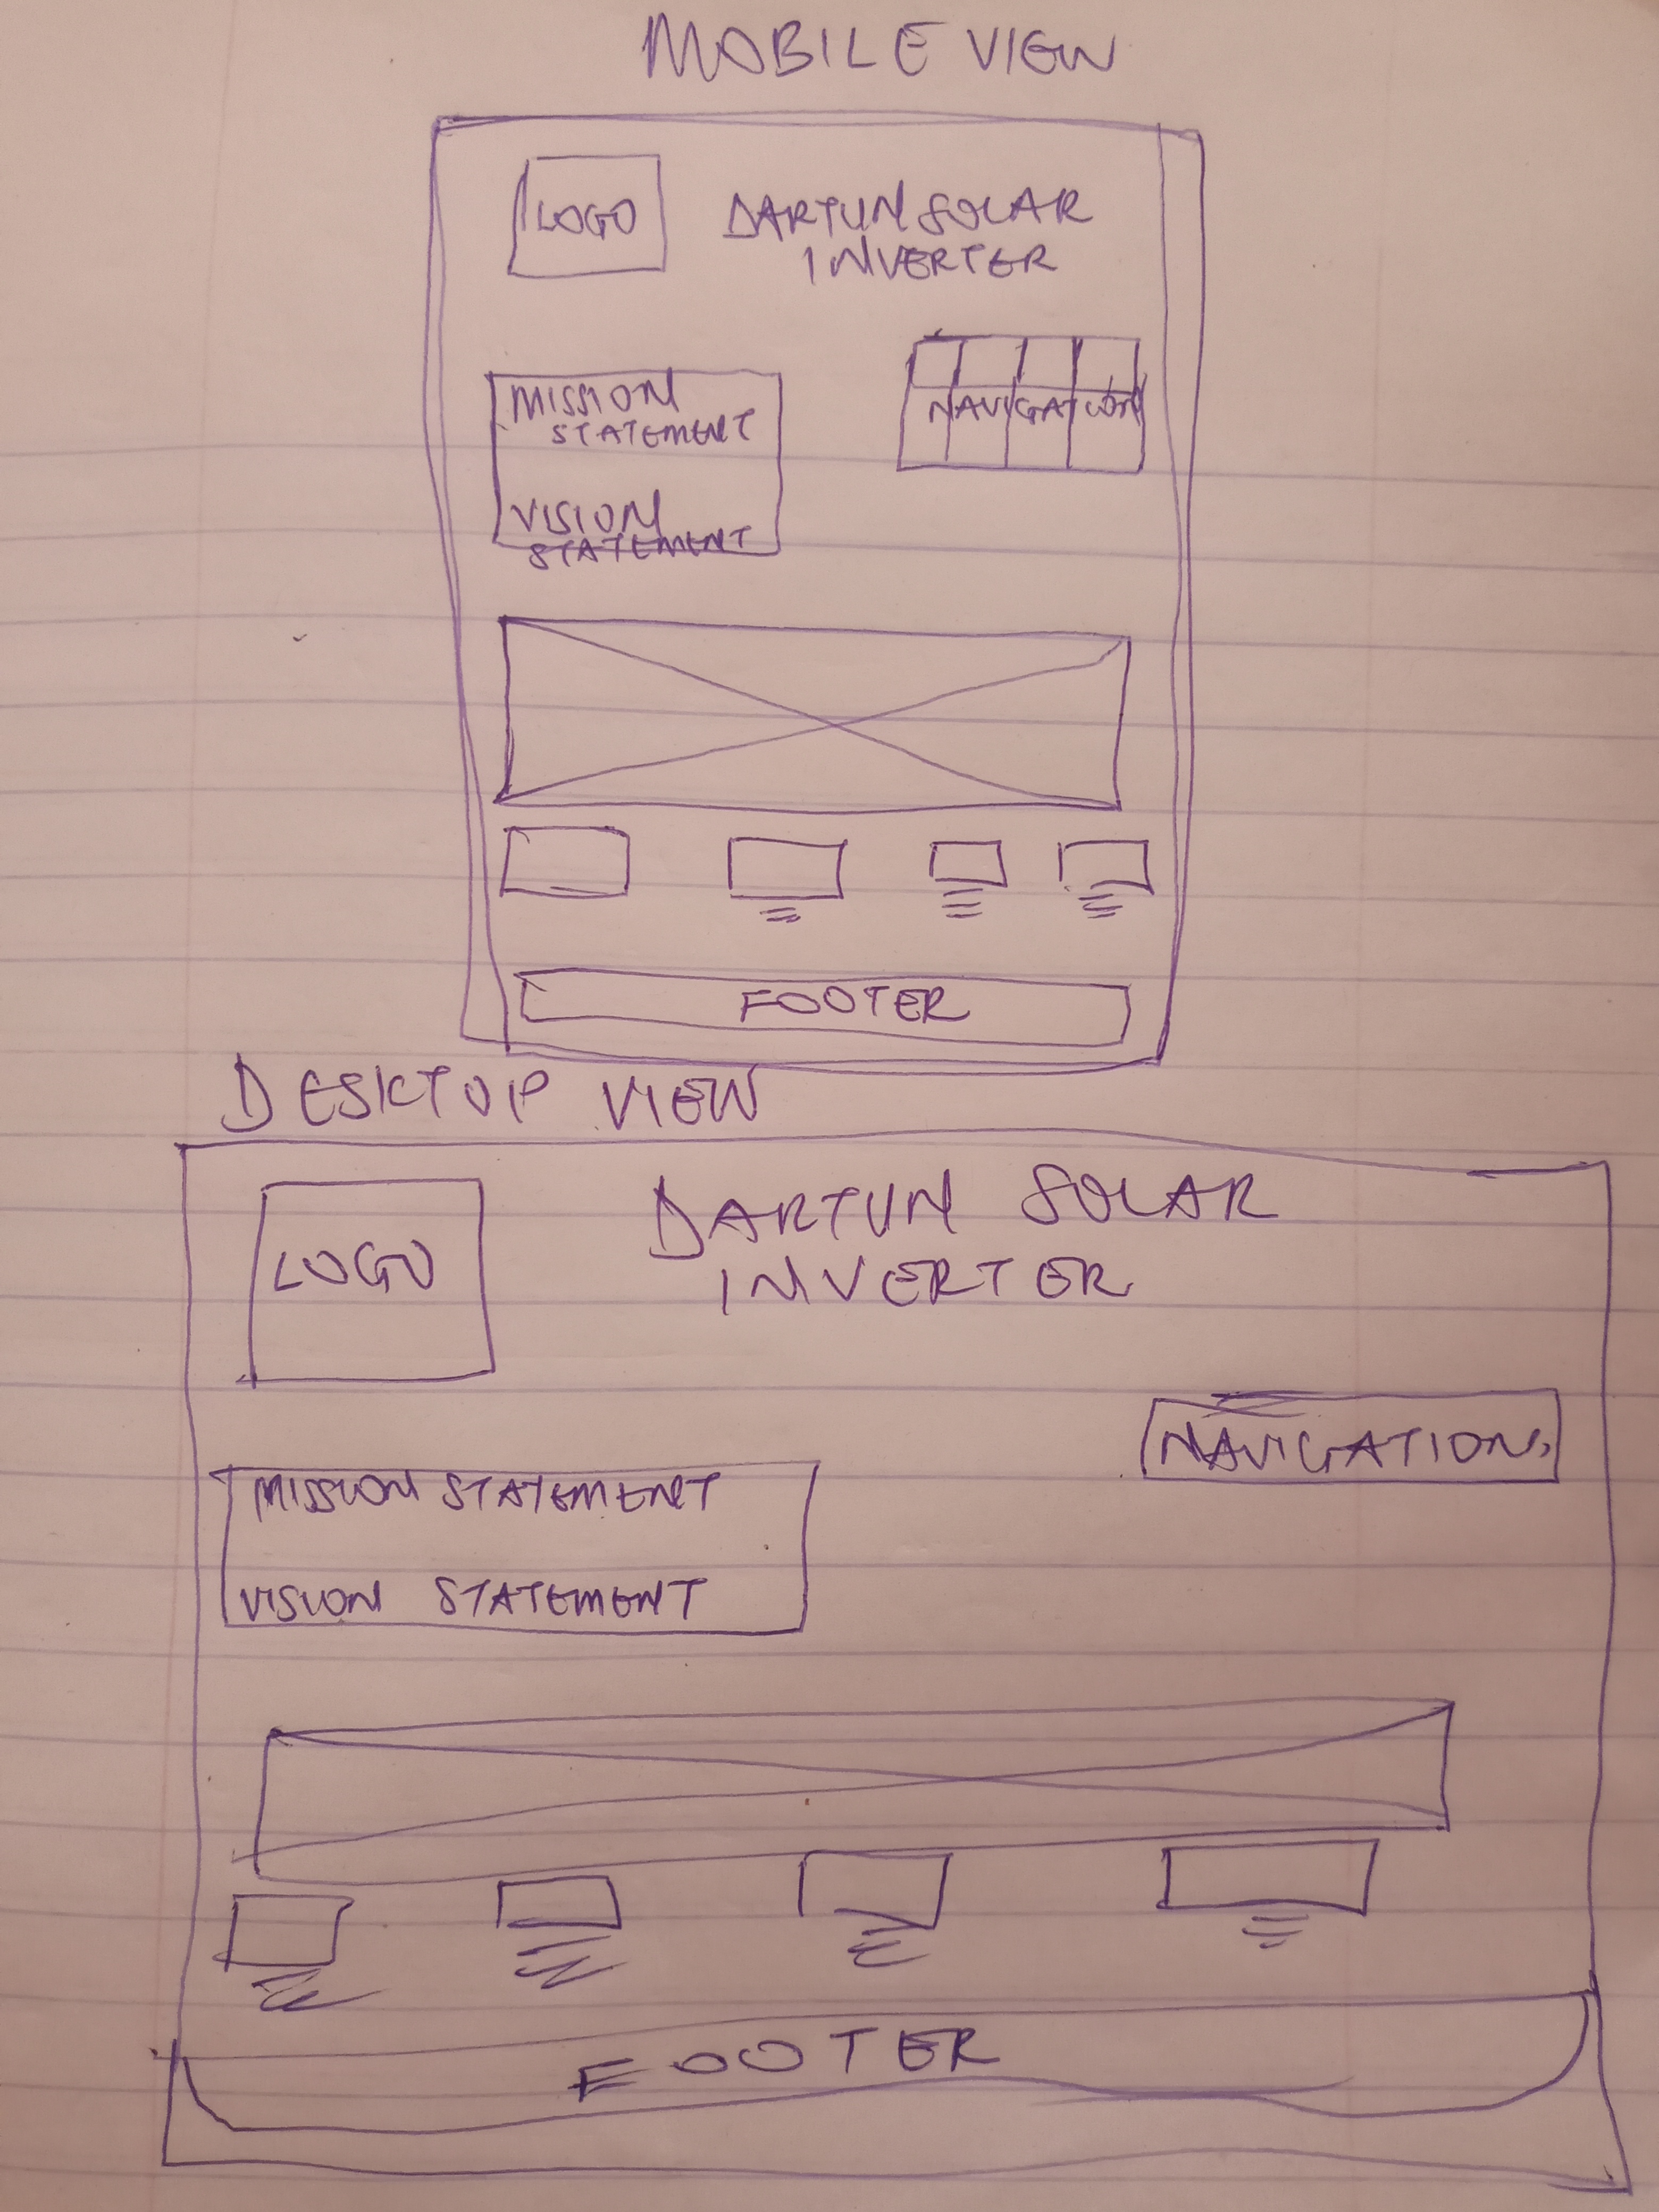 MOBILE VIEW
LOGO
DARTUN SOLAR
INVERTER
NAVIGATION
MISSION
STATEMENT
VISION
STATEMENT
FOOTER
DESKTOP VIEW
LOGO
DARTUN SOLAR
INVERTER
NAVIGATION
MISSION STATEMENT
VISION STATEMENT
FOOTER